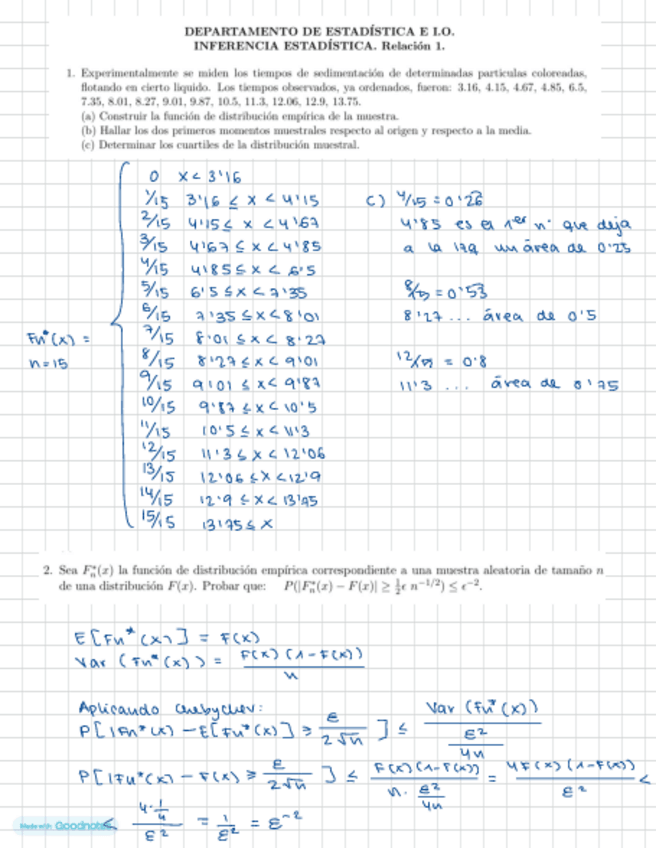 DEPARTAMENTO DE ESTADÍSTICA E I.O.
INFERENCIA ESTADÍSTICA. Relación 1.
1. Experimentalmente se miden los tiempos de sedimentación de determinadas partículas coloreadas,
flotando en cierto líquido. Los tiempos observados, ya ordenados, fueron: 3.16, 4.15, 4.67, 4.85, 6.5,
7.35, 8.01, 8.27, 9.01, 9.87, 10.5, 11.3, 12.06, 12.9, 13.75.
(a) Construir la función de distribución empírica de la muestra.
(b) Hallar los dos primeros momentos muestrales respecto al origen y respecto a la media.
(c) Determinar los cuartiles de la distribución muestral.
Fn*(x) =
n=15
0 x < 3'16
1/15 3'16 ≤ x < 4'15
2/15 4'15 ≤ x < 4'67
3/15 4'67 ≤ x < 4'85
4/15 4'85 ≤ x < 6'5
5/15 6'5 ≤ x < 7'35
6/15 7'35 ≤ x < 8'01
7/15 8'01 ≤ x < 8'27
8/15 8'27 ≤ x < 9'01
9/15 9'01 ≤ x < 9'87
10/15 9'87 ≤ x < 10'5
11/15 10'5 ≤ x < 11'3
12/15 11'3 ≤ x < 12'06
13/15 12'06 ≤ x < 12'9
14/15 12'9 ≤ x < 13'75
15/15 13'75 ≤ x
c) 4/15 = 0'26
4'85 es el 1er nº que deja
a la izq un área de 0'25
8/15 = 0'53
8'27 ... área de 0'5
12/15 = 0'8
11'3 ... área de 0'75
2. Sea F*n(x) la función de distribución empírica correspondiente a una muestra aleatoria de tamaño n
de una distribución F(x). Probar que: P(|F*n(x) − F(x)| ≥ ½ε n^−1/2) ≤ ε^−2.
E[Fn*(x)] = F(x)
Var (Fn*(x)) = F(x)(1−F(x)) / n
Aplicando Chebychev:
P[|Fn*(x) − E[Fn*(x)] ≥ ε / 2√n ] ≤ Var (Fn*(x)) / ε²/4n
P[|Fn*(x) − F(x) ≥ ε / 2√n ] ≤ F(x)(1−F(x)) / n·ε²/4n = 4F(x)(1−F(x)) / ε² ≤
≤ 4·¼ / ε² = 1/ε² = ε^−2
Made with Goodnotes